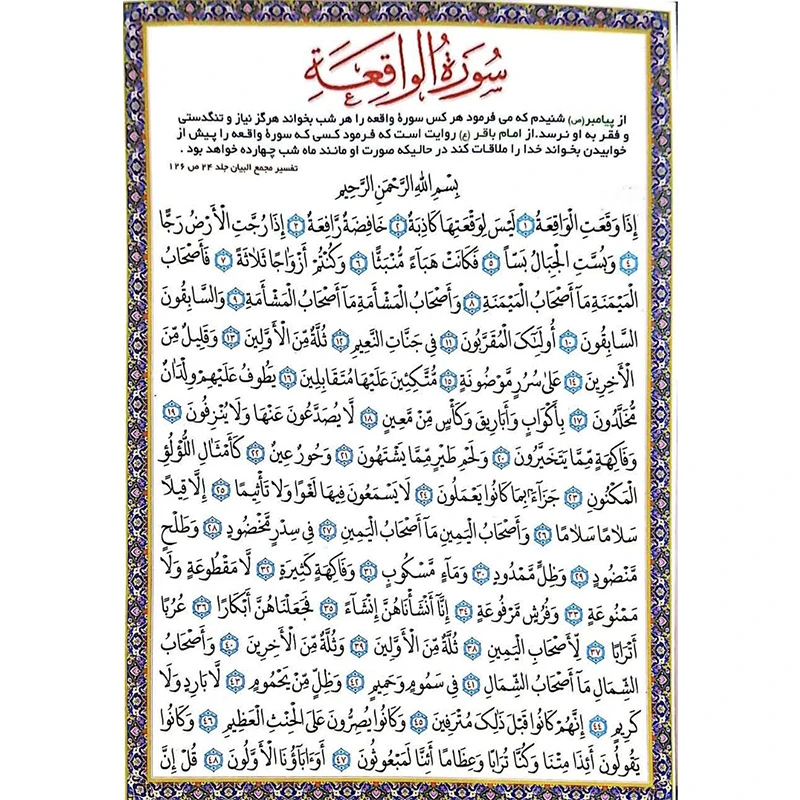 سُورَةُ الْوَاقِعَةِ
از پیامبر(ص) شنیدم که می فرمود هر کس سورهٔ واقعه را هر شب بخواند هرگز نیاز و تنگدستی
و فقر به او نرسد.از امام باقر (ع) روایت است که فرمود کسی که سورهٔ واقعه را پیش از
خوابیدن بخواند خدا را ملاقات کند در حالیکه صورت او مانند ماه شب چهارده خواهد بود .
تفسیر مجمع البیان جلد ۲۴ ص ۱۲۶
بِسْمِ اللهِ الرَّحْمَنِ الرَّحِيمِ
إِذَا وَقَعَتِ الْوَاقِعَةُ ۱ لَيْسَ لِوَقْعَتِهَا كَاذِبَةٌ ۲ خَافِضَةٌ رَافِعَةٌ ۳ إِذَا رُجَّتِ الْأَرْضُ رَجًّا
۴ وَبُسَّتِ الْجِبَالُ بَسًّا ۵ فَكَانَتْ هَبَاءً مُنْبَثًّا ۶ وَكُنْتُمْ أَزْوَاجًا ثَلَاثَةً ۷ فَأَصْحَابُ
الْمَيْمَنَةِ مَا أَصْحَابُ الْمَيْمَنَةِ ۸ وَأَصْحَابُ الْمَشْأَمَةِ مَا أَصْحَابُ الْمَشْأَمَةِ ۹ وَالسَّابِقُونَ
السَّابِقُونَ ۱۰ أُولَئِكَ الْمُقَرَّبُونَ ۱۱ فِي جَنَّاتِ النَّعِيمِ ۱۲ ثُلَّةٌ مِنَ الْأَوَّلِينَ ۱۳ وَقَلِيلٌ مِّنَ
الْآخِرِينَ ۱۴ عَلَى سُرُرٍ مَّوْضُونَةٍ ۱۵ مُتَّكِئِينَ عَلَيْهَا مُتَقَابِلِينَ ۱۶ يَطُوفُ عَلَيْهِمْ وِلْدَانٌ
مُخَلَّدُونَ ۱۷ بِأَكْوَابٍ وَأَبَارِيقَ وَكَأْسٍ مِّنْ مَعِينٍ ۱۸ لَا يُصَدَّعُونَ عَنْهَا وَلَا يُنْزِفُونَ ۱۹
وَفَاكِهَةٍ مِّمَّا يَتَخَيَّرُونَ ۲۰ وَلَحْمِ طَيْرٍ مِّمَّا يَشْتَهُونَ ۲۱ وَحُورٌ عِينٌ ۲۲ كَأَمْثَالِ اللُّؤْلُؤِ
الْمَكْنُونِ ۲۳ جَزَاءً بِمَا كَانُوا يَعْمَلُونَ ۲۴ لَا يَسْمَعُونَ فِيهَا لَغْوًا وَلَا تَأْثِيمًا ۲۵ إِلَّا قِيلًا
سَلَامًا سَلَامًا ۲۶ وَأَصْحَابُ الْيَمِينِ مَا أَصْحَابُ الْيَمِينِ ۲۷ فِي سِدْرٍ مَّخْضُودٍ ۲۸ وَطَلْحٍ
مَنْضُودٍ ۲۹ وَظِلٍّ مَمْدُودٍ ۳۰ وَمَاءٍ مَسْكُوبٍ ۳۱ وَفَاكِهَةٍ كَثِيرَةٍ ۳۲ لَا مَقْطُوعَةٍ وَلَا
مَمْنُوعَةٍ ۳۳ وَفُرُشٍ مَرْفُوعَةٍ ۳۴ إِنَّا أَنْشَأْنَاهُنَّ إِنْشَاءً ۳۵ فَجَعَلْنَاهُنَّ أَبْكَارًا ۳۶ عُرُبًا
أَتْرَابًا ۳۷ لِأَصْحَابِ الْيَمِينِ ۳۸ ثُلَّةٌ مِنَ الْأَوَّلِينَ ۳۹ وَثُلَّةٌ مِنَ الْآخِرِينَ ۴۰ وَأَصْحَابُ
الشِّمَالِ مَا أَصْحَابُ الشِّمَالِ ۴۱ فِي سَمُومٍ وَحَمِيمٍ ۴۲ وَظِلٍّ مِّنْ يَحْمُومٍ ۴۳ لَا بَارِدٍ وَلَا
كَرِيمٍ ۴۴ إِنَّهُمْ كَانُوا قَبْلَ ذَلِكَ مُتْرَفِينَ ۴۵ وَكَانُوا يُصِرُّونَ عَلَى الْحِنْثِ الْعَظِيمِ ۴۶ وَكَانُوا
يَقُولُونَ أَئِذَا مِتْنَا وَكُنَّا تُرَابًا وَعِظَامًا أَئِنَّا لَمَبْعُوثُونَ ۴۷ أَوَآبَاؤُنَا الْأَوَّلُونَ ۴۸ قُلْ إِنَّ